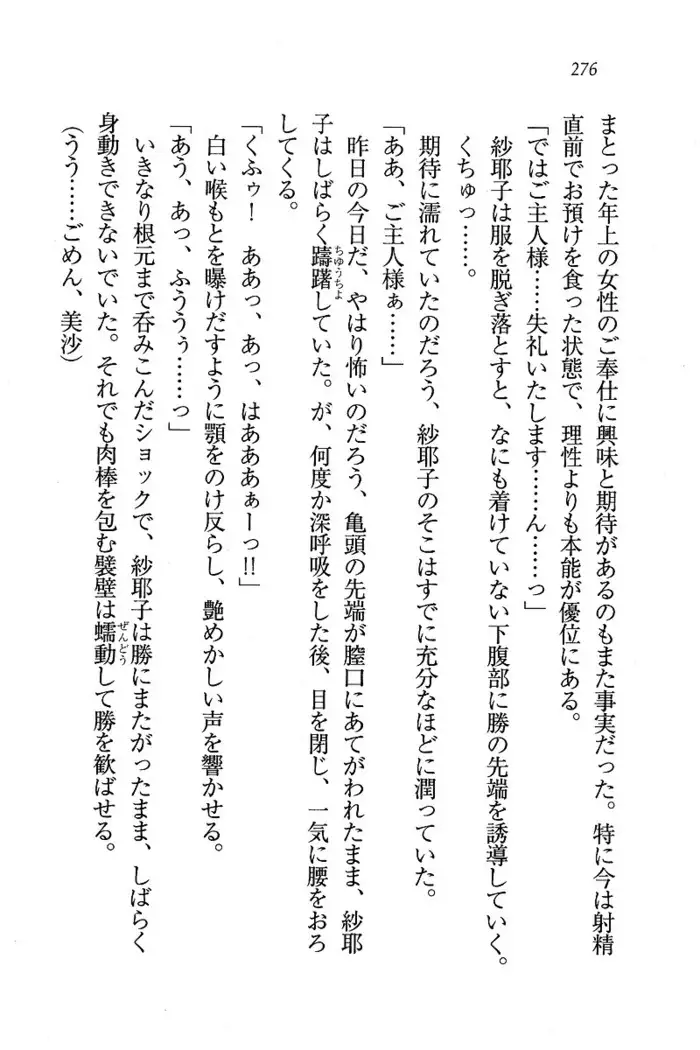 276
まとった年上の女性のご奉仕に興味と期待があるのもまた事実だった。特に今は射精
直前でお預けを食った状態で、理性よりも本能が優位にある。
「ではご主人様……失礼いたします……ん……っ」
紗耶子は服を脱ぎ落とすと、なにも着けていない下腹部に勝の先端を誘導していく。
くちゅっ……。
期待に濡れていたのだろう、紗耶子のそこはすでに充分なほどに潤っていた。
「ああ、ご主人様ぁ……」
昨日の今日だ、やはり怖いのだろう、亀頭の先端が膣口にあてがわれたまま、紗耶
子はしばらく躊躇していた。が、何度か深呼吸をした後、目を閉じ、一気に腰をおろ
してくる。
「くふゥ！　ああっ、あっ、はあああぁーっ!!」
白い喉もとを曝けだすように顎をのけ反らし、艶めかしい声を響かせる。
「あう、あっ、ふううぅ……っ」
いきなり根元まで呑みこんだショックで、紗耶子は勝にまたがったまま、しばらく
身動きできないでいた。それでも肉棒を包む襞壁は蠕動して勝を歓ばせる。
（うう……ごめん、美沙）
ちゅうちょ
ぜんどう